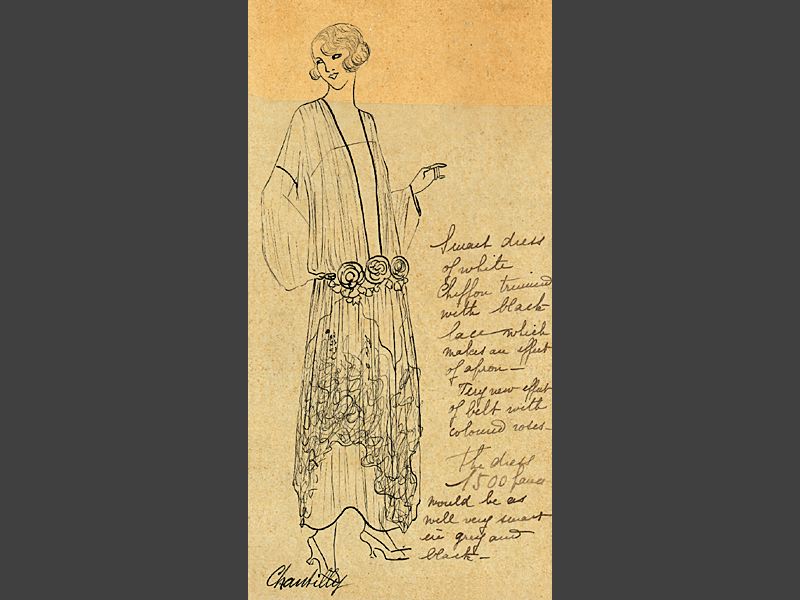 Smart dress
of white
Chiffon trimmed
with black
lace which
makes an effect
of apron —
Very new effect
of belt with
coloured roses —
The dress
1500 francs
would be as
well very smart
in grey and
black —
Chantilly